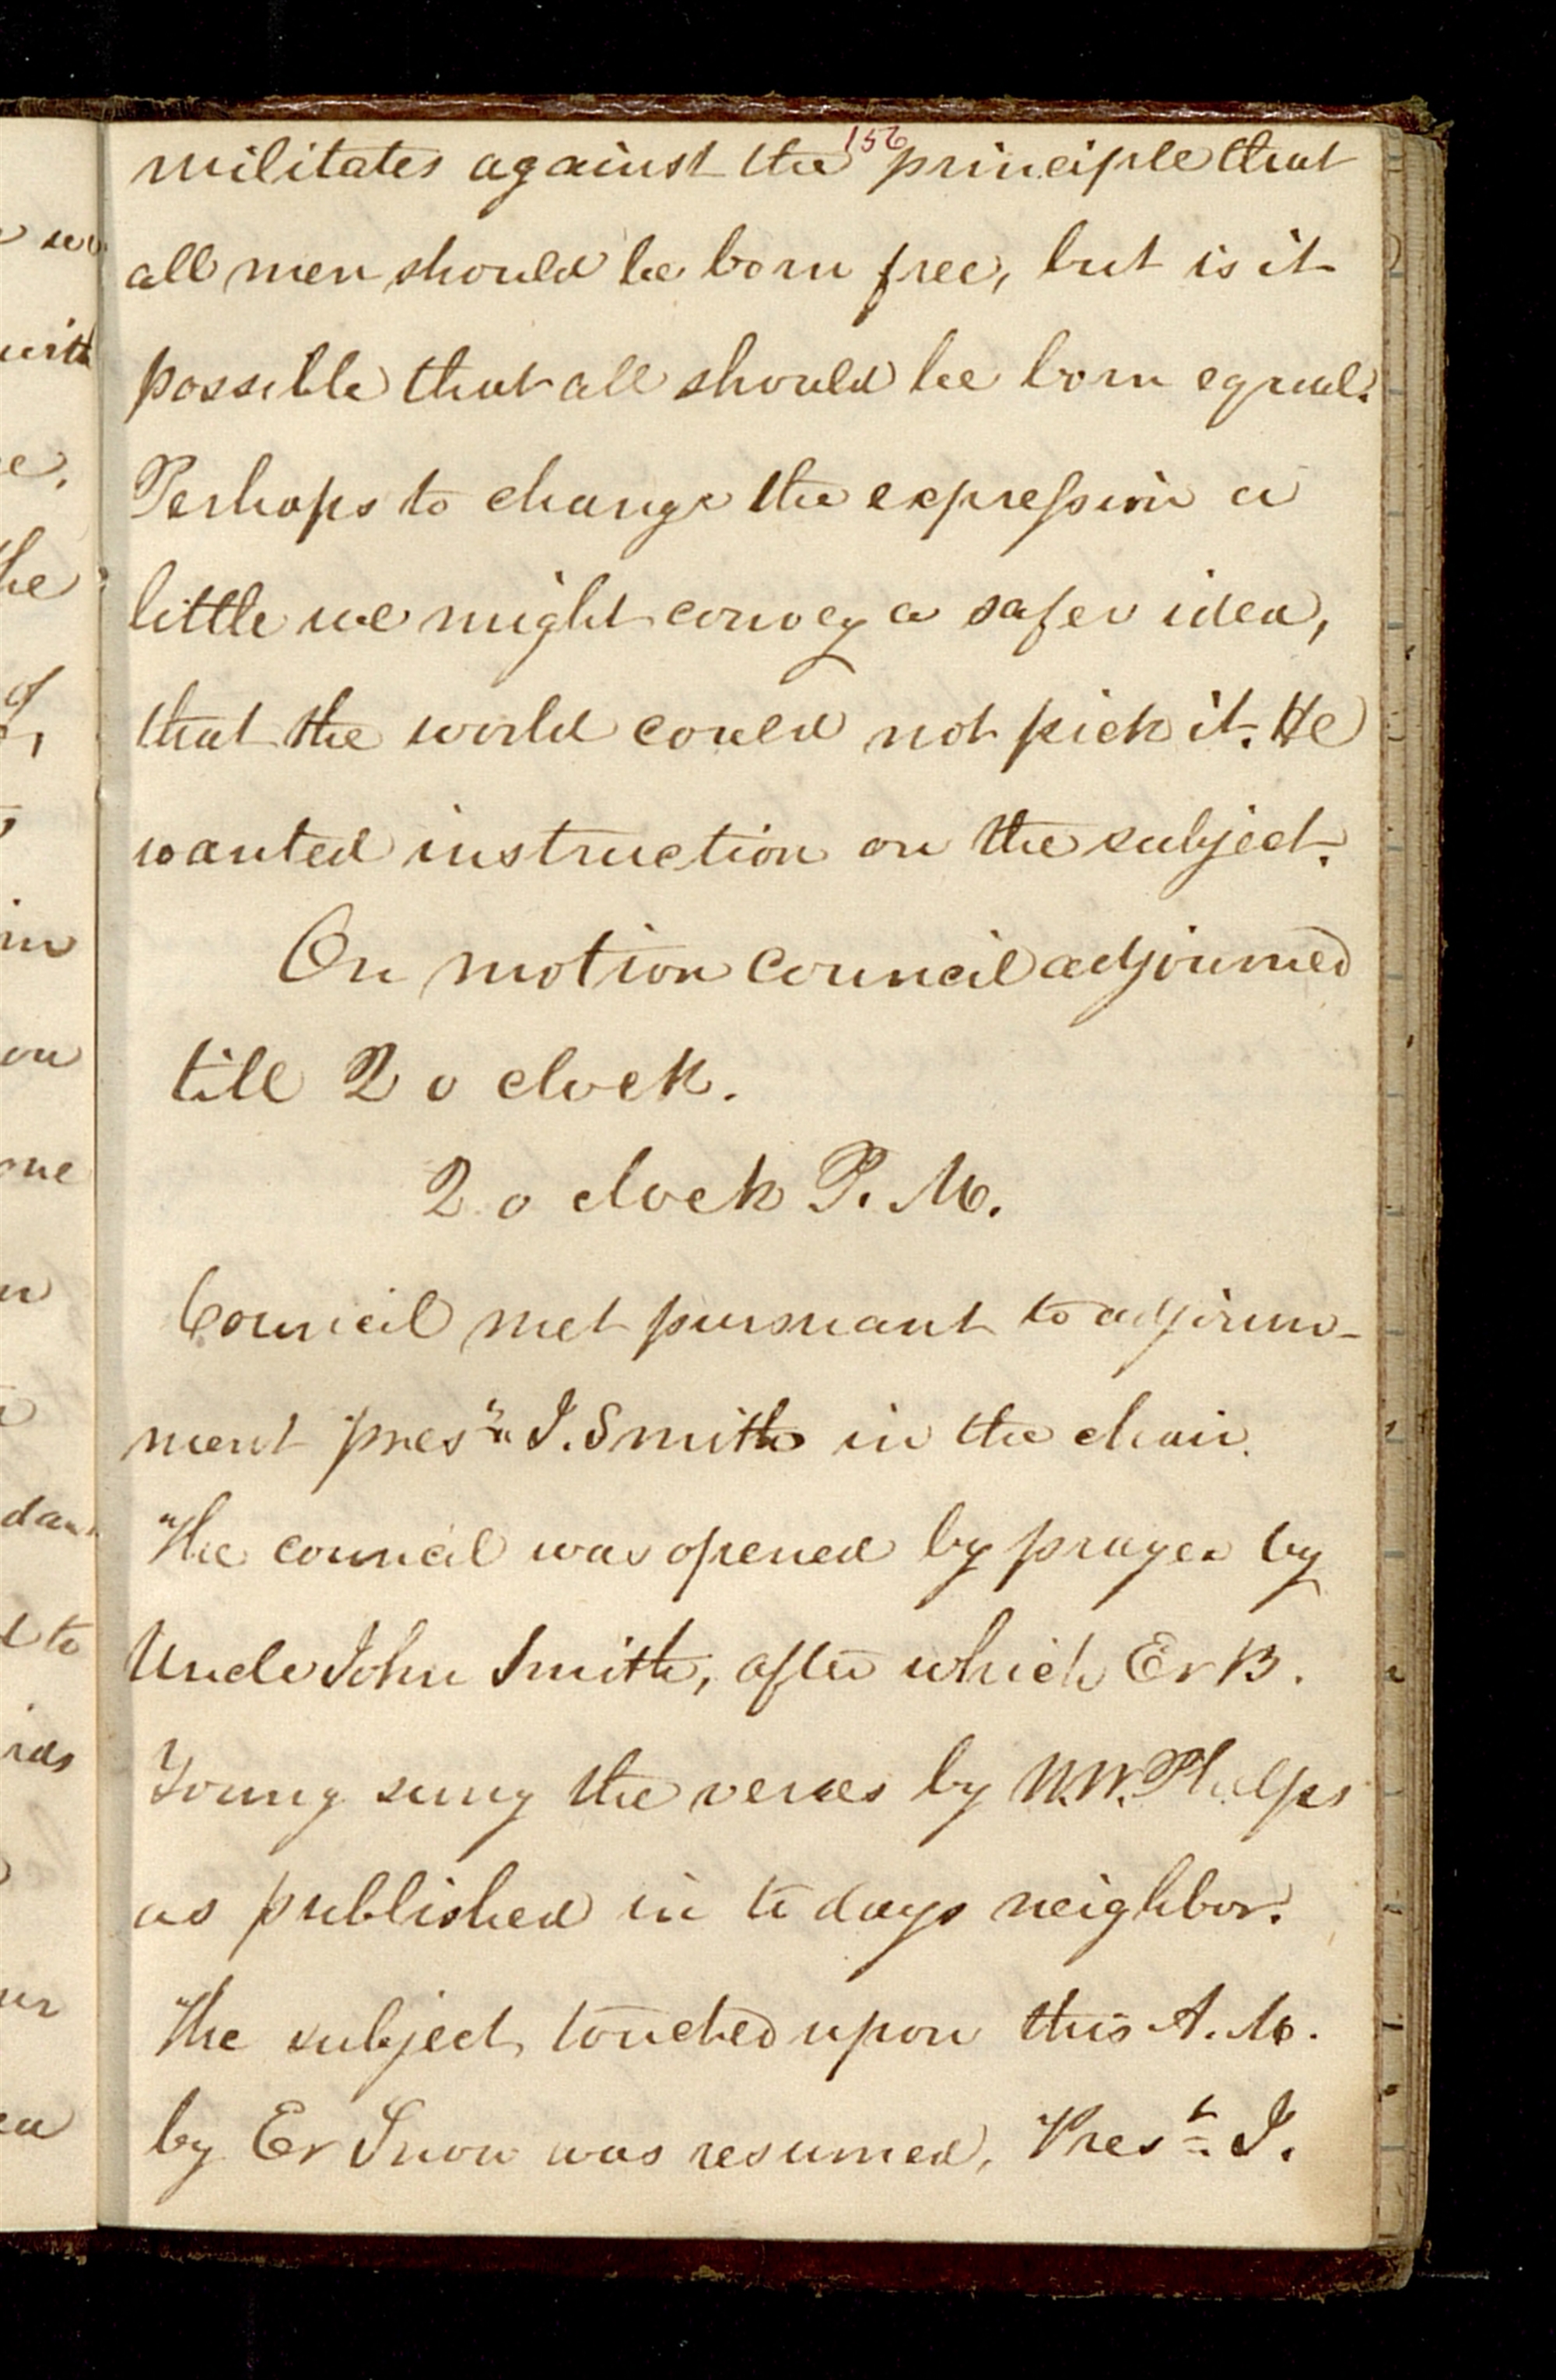 156
militates against the principle that
all men should be born free, but is it
possible that all should be born equal.
Perhaps to change the expression a
little we might convey a safer idea,
that the world could not pick it. He
wanted instruction on the subject.
On motion council adjourned
till 2 o clock.
2 o clock P. M.
Council met pursuant to adjourn-
ment pres.t J. Smith in the chair.
The council was opened by prayer by
Uncle John Smith, after which Er B.
Young sung the verses by W. W. Phelps
as published in to days neighbor.
The subject touched upon this A. M.
by Er Snow was resumed, Pres.t J.